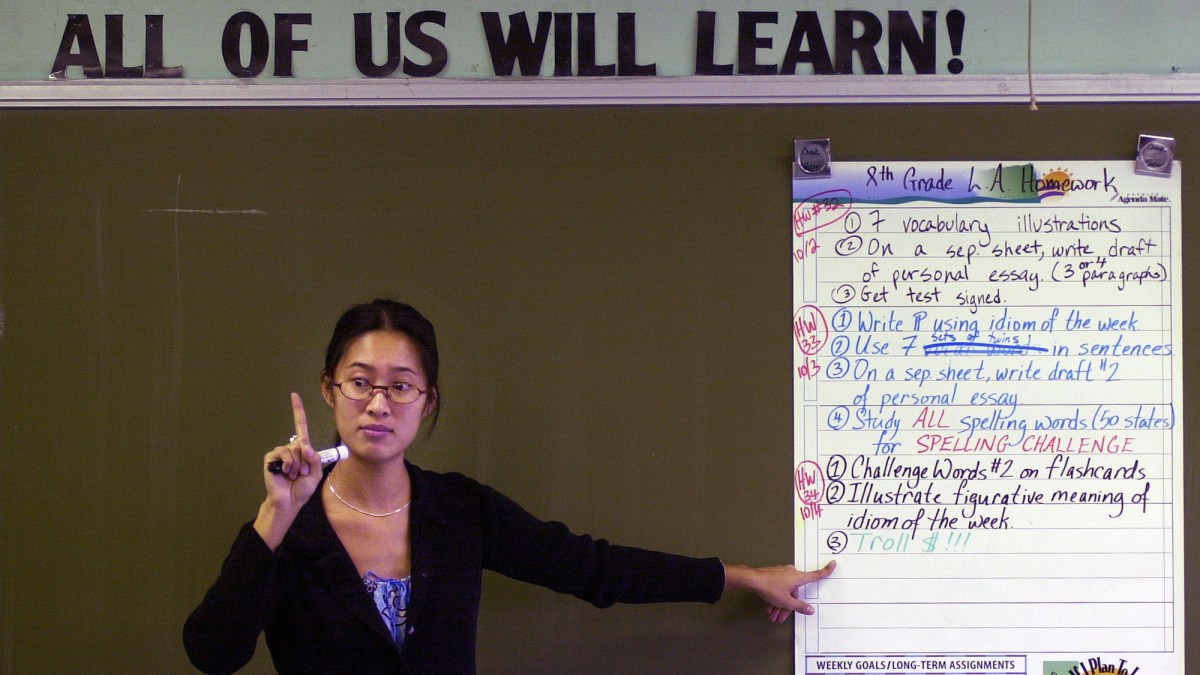 ALL OF US WILL LEARN!
8th Grade L.A. Homework
Agenda Mate
HW #32
10/2
① 7 vocabulary illustrations
② On a sep. sheet, write draft
of personal essay. (3 or 4 paragraphs)
③ Get test signed.
HW 33
10/3
① Write ¶ using idiom of the week.
② Use 7 sets of twins in sentences
③ On a sep. sheet, write draft #2
of personal essay.
④ Study ALL spelling words (50 states)
for SPELLING CHALLENGE
HW 34
10/4
① Challenge Words #2 on flashcards
② Illustrate figurative meaning of
idiom of the week.
③ Troll $!!!
WEEKLY GOALS/LONG-TERM ASSIGNMENTS
If I Plan To